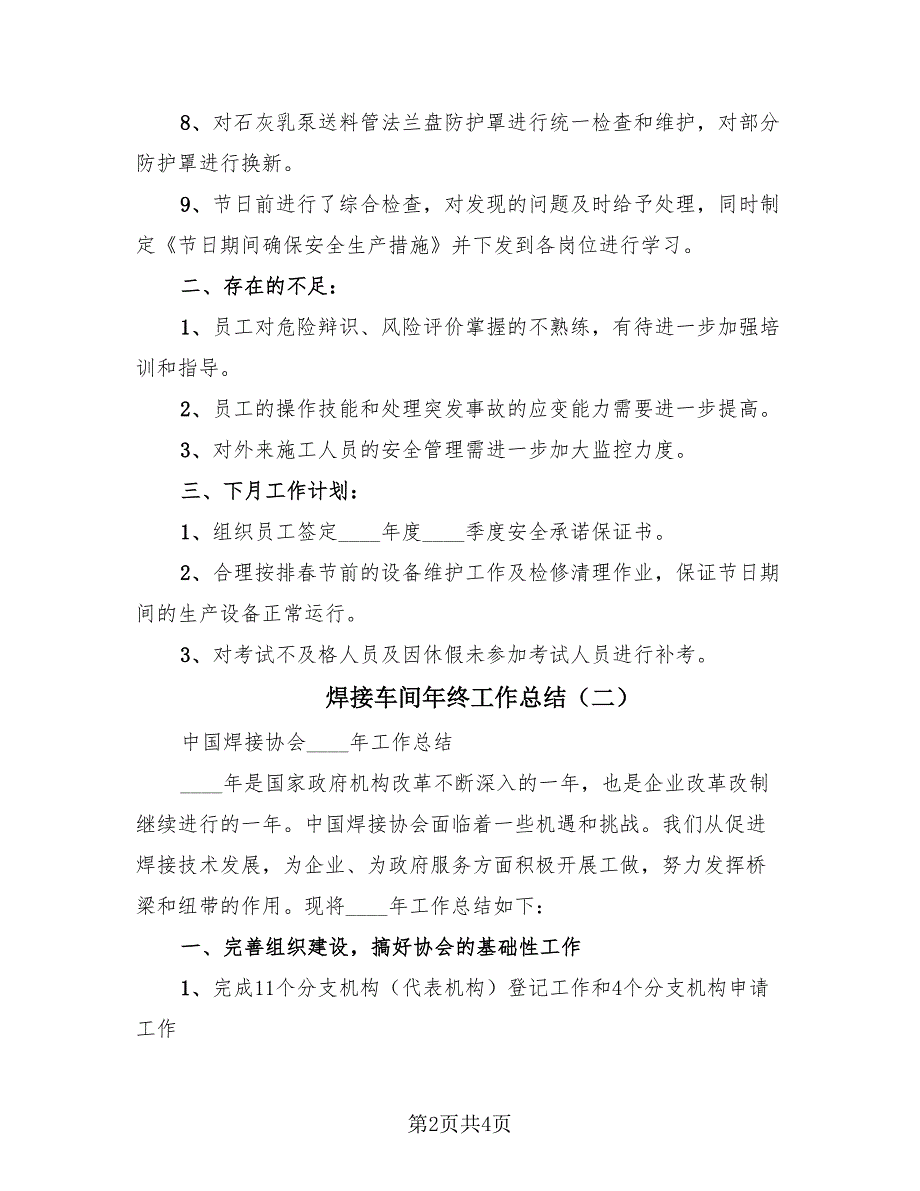 8、对石灰乳泵送料管法兰盘防护罩进行统一检查和维护，对部分
防护罩进行换新。
9、节日前进行了综合检查，对发现的问题及时给予处理，同时制
定《节日期间确保安全生产措施》并下发到各岗位进行学习。
二、存在的不足：
1、员工对危险辩识、风险评价掌握的不熟练，有待进一步加强培
训和指导。
2、员工的操作技能和处理突发事故的应变能力需要进一步提高。
3、对外来施工人员的安全管理需进一步加大监控力度。
三、下月工作计划：
1、组织员工签定____年度____季度安全承诺保证书。
2、合理按排春节前的设备维护工作及检修清理作业，保证节日期
间的生产设备正常运行。
3、对考试不及格人员及因休假未参加考试人员进行补考。
焊接车间年终工作总结（二）
中国焊接协会____年工作总结
____年是国家政府机构改革不断深入的一年，也是企业改革改制
继续进行的一年。中国焊接协会面临着一些机遇和挑战。我们从促进
焊接技术发展，为企业、为政府服务方面积极开展工做，努力发挥桥
梁和纽带的作用。现将____年工作总结如下：
一、完善组织建设，搞好协会的基础性工作
1、完成11个分支机构（代表机构）登记工作和4个分支机构申请
工作
第2页共4页